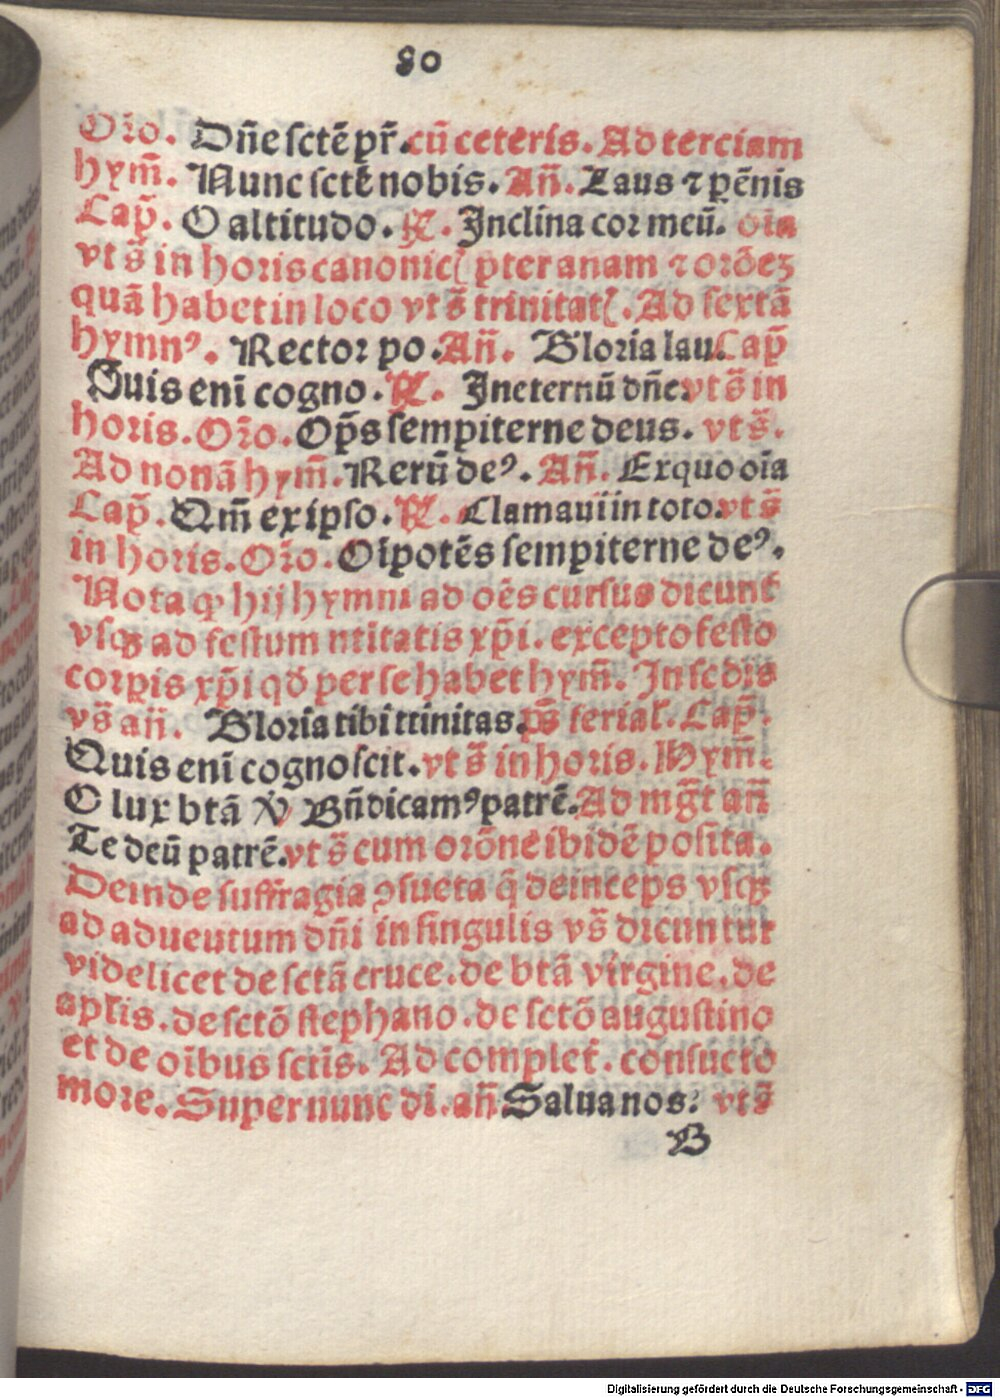 80
Oro. Dñe sctē pr̄. cū ceteris. Ad terciam
hym̄. Nunc sctē nobis. Añ. Laus ⁊ pēnis
Cap̄. O altitudo. ℟. Inclina cor meū. oīa
vt s̄ in horis canonicꝭ pter anam ⁊ orōeꝫ
quā habet in loco vt s̄ trinitatꝭ. Ad sextā
hymnꝰ. Rector po. Añ. Gloria lau. Cap̄
Quis eni cogno. ℟. In eternū dñe. vt s̄ in
horis. Oro. Op̄s sempiterne deus. vt s̄.
Ad nonā hym̄. Rerū deꝰ. Añ. Ex quo oīa
Cap̄. Qm̄ ex ipso. ℟. Clamaui in toto. vt s̄
in horis. Oro. Oīpotēs sempiterne deꝰ.
Nota ꝙ hij hymni ad oēs cursus dicunt̄
vsqꝫ ad festum ntītatis xp̄i. excepto festo
corpis xp̄i qd̄ per se habet hym̄. In scdīs
vs̄ añ. Gloria tibi trinitas. ps̄ ferial. Cap̄.
Quis eni cognoscit. vt s̄ in horis. Hym̄.
O lux btā ℣ Bñdicamꝰ patrē. Ad mgt̄ añ
Te deū patrē. vt s̄ cum orōne ibidē posita.
Deinde suffragia ꝯsueta q̄ deinceps vsqꝫ
ad aduentum dñi in singulis vs̄ dicuntur
videlicet de sctā cruce. de btā virgine. de
aplis. de sctō stephano. de sctō augustino
et de oībus sctis. Ad complet̄. consueto
more. Super nunc di. añ Salua nos. vt s̄
B
Digitalisierung gefördert durch die Deutsche Forschungsgemeinschaft - DFG